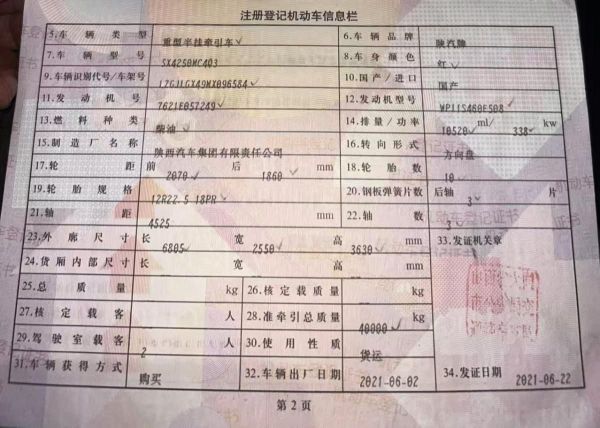 注册登记机动车信息栏
5.车辆类型 重型半挂牵引车 6.车辆品牌 陕汽牌
7.车辆型号 SX4250MC4Q3 8.车身颜色 红
9.车辆识别代号/车架号 10.国产/进口 国产
11.发动机号 7621E057249 12.发动机型号 WP11S460E508
13.燃料种类 柴油 14.排量/功率 10520 ml/ 338 kw
15.制造厂名称 陕西汽车集团有限责任公司 16.转向形式 方向盘
17.轮距 前 2070 后 1860 mm 18.轮胎数 10
19.轮胎规格 12R22.5 18PR 20.钢板弹簧片数 后轴 3 片
21.轴距 4525 mm 22.轴数 3
23.外廓尺寸 长 6805 宽 2550 高 3630 mm 33.发证机关章
24.货厢内部尺寸 长 宽 高 mm
25.总质量 kg 26.核定载质量 kg
27.核定载客 人 28.准牵引总质量 40000 kg
29.驾驶室载客 2 人 30.使用性质 货运
31.车辆获得方式 购买 32.车辆出厂日期 2021-06-02 34.发证日期 2021-06-22
第2页